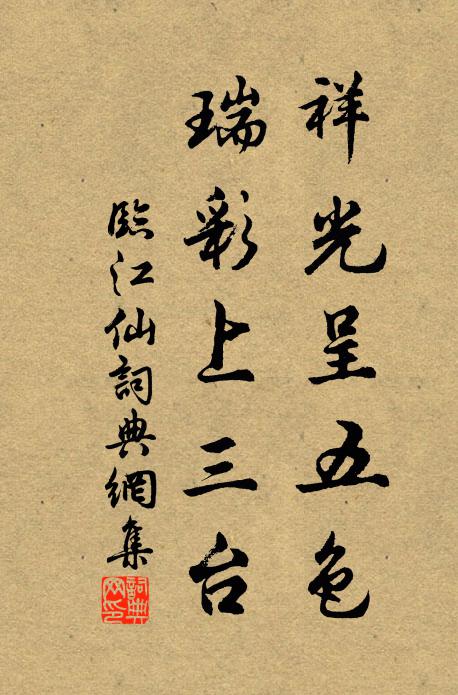 祥光呈五色
瑞彩上三台
臨江仙詞典網集
詞典網印